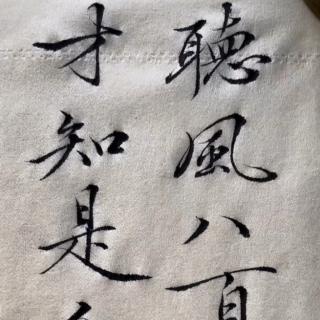 聽風八百
才知是